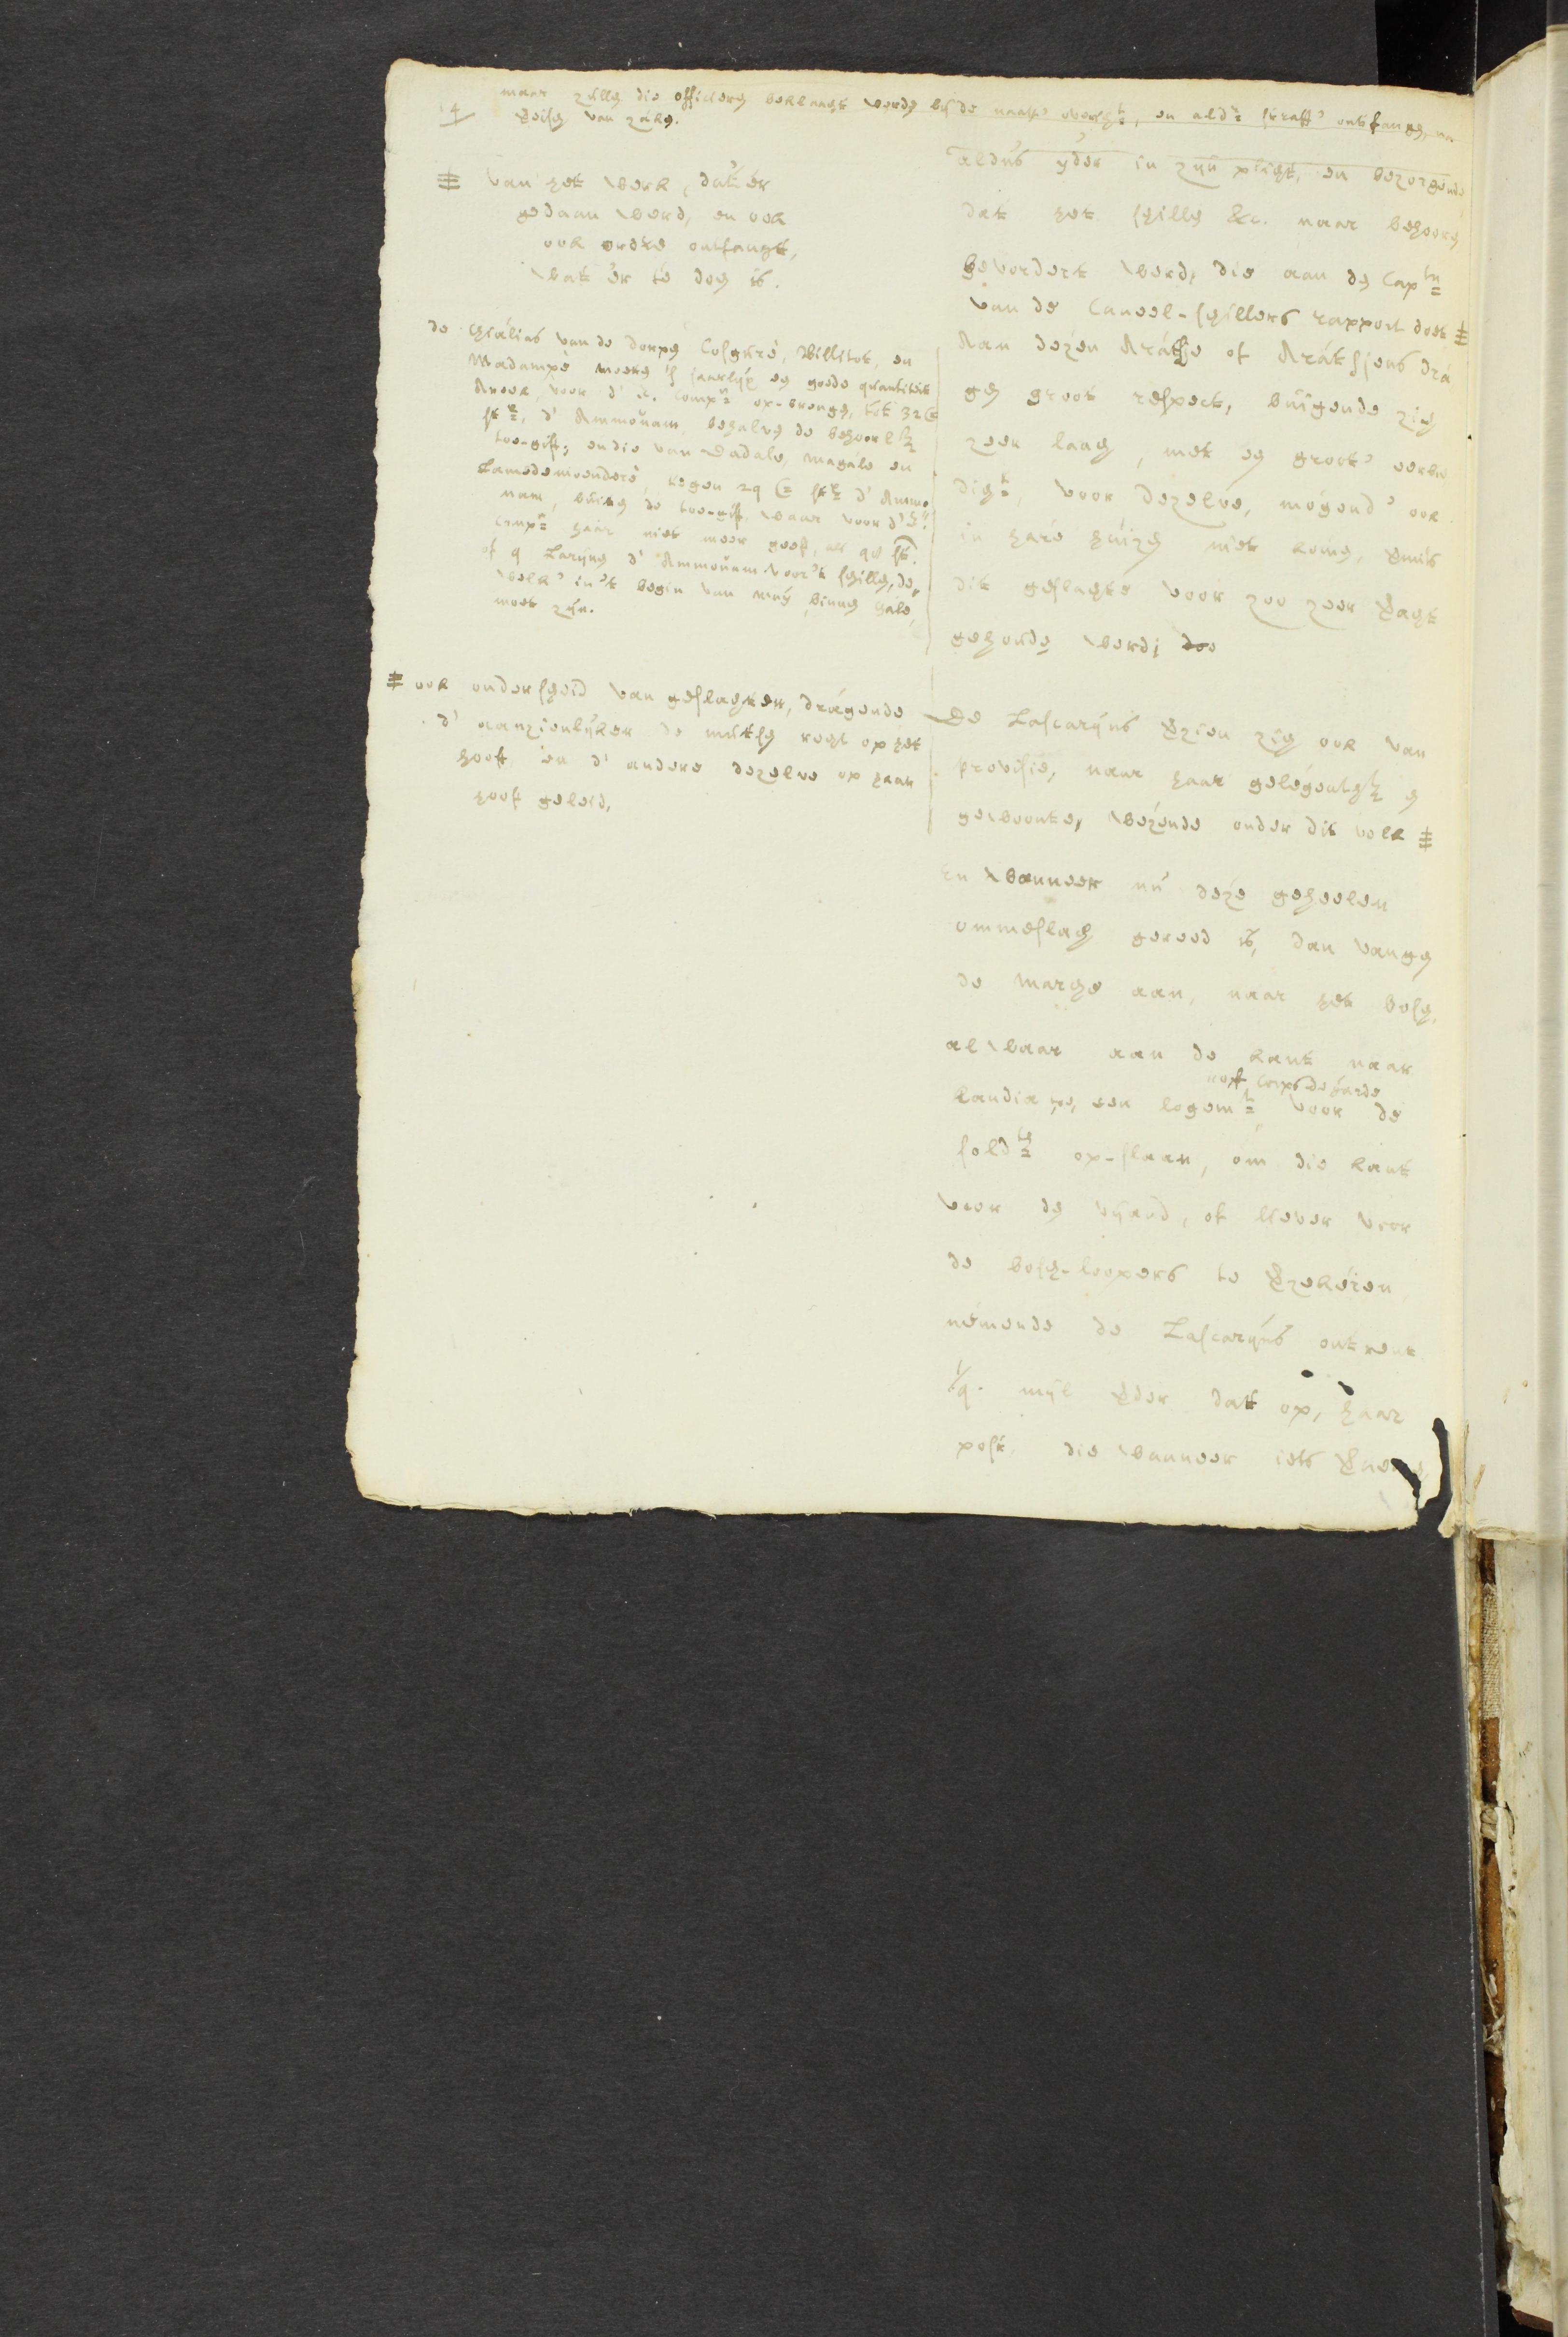 14
maar zúllen die officiers beklaagt werden bij de naaste overh:t, en ald:r straffe ontfangen, na
eisch van záken.
⹀ van het werk, dat 'er
gedaan werd, en ook
ook ordre ontfangt,
wat 'er te doen is.
de Chiálias van de dorpen Cosgúré, Willitot, en
Madampé moeten 's jaarlijx een goede quantitéit
Areek, voor d' E. Comp:e op-brengen, tot 32
st:x, d' Ammoúnam, behalven de behoorl:ke
toe-gift; en die van Dadale, Magále en
tegen 29 st:x d' Ammo,
nam, búiten de toe-gift, waar voor d' E:
Comp:e haar niet meer geeft, als
of 9 Larýns d' Ammoúnam voor 't schillen, de,
welke in 't begin van Meý, binnen Gále,
moet zijn.
⹀ ook onderscheid van geslachten, drágende
d' aanzienlijker de mútsen regt op het
hooft, en d' andere dezelve op haar
hooft geleid,
aldús ýder in zijn plicht, en bezorgende,
dat het schillen &c. naar behooren
bevordert werd; die aan den Cap:tn
van de Caneel-schillers rapport doet ⹀
Aan dezen Arátsje of Arátsjens drá
gen groot respect, búigende zich
zeer laag, met een groote eerbie
digh:t, voor dezelve, mógende ook
in hare húizen niet komen, vermits
dit geslachte voor zoo zeer veracht
gehouden werd;
De Lascarýns verzien zig ook van
provisie, naar haar gelégenth:t en
gewoonte, wézende onder dit volk ⹀
En wanneer nú déze geheelen
ommeslach gereed is, dan vangen
de marche aan, naar het bosch,
alwaar aan de kant naar
Candia toe, een logem:t, voor de
off Corps de garde
sold:ten op-slaan, om die kant
voor den vijand, of liever voor
de bosch-loopers te verzekéren,
némende de Lascarijns ontrent
1/4. mijl verder dat op, haar
post, die wanneer iets